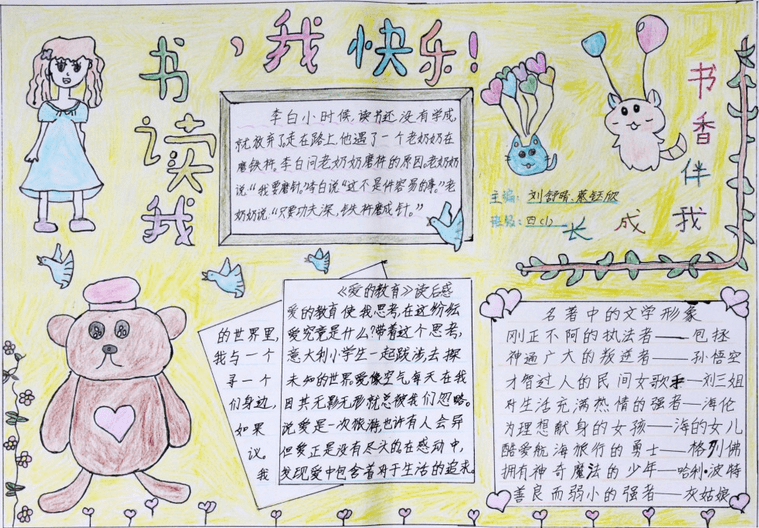 我读书，我快乐！
李白小时候，读书还没有学成，
就放弃了，走在路上，他遇了一个老奶奶在
磨铁杵。李白问老奶奶磨杵的原因，老奶奶
说“我要磨针。”李白说“这不是件容易的事。”老
奶奶说“只要功夫深，铁杵磨成针。”
主编：刘舒晴、
班级：四(1)
书香伴我
成长
《爱的教育》读后感
爱的教育使我思考，在这纷纭
的世界里，爱究竟是什么？带着这个思考，
我与一个意大利小学生一起跋涉去探
寻一个未知的世界爱像空气每天在我
们身边，因其无影无形就总被我们忽略。
如果说爱是一次旅游，也许有人会异
议，但爱正是没有尽头的在感动中，
我发现爱中包含着对于生活的追求
名著中的文学形象
刚正不阿的执法者——包拯
神通广大的叛逆者——孙悟空
才智过人的民间女歌手—刘三姐
对生活充满热情的强者—海伦
为理想献身的女孩—海的女儿
酷爱航海旅行的勇士—格列佛
拥有神奇魔法的少年—哈利·波特
善良而弱小的强者——灰姑娘